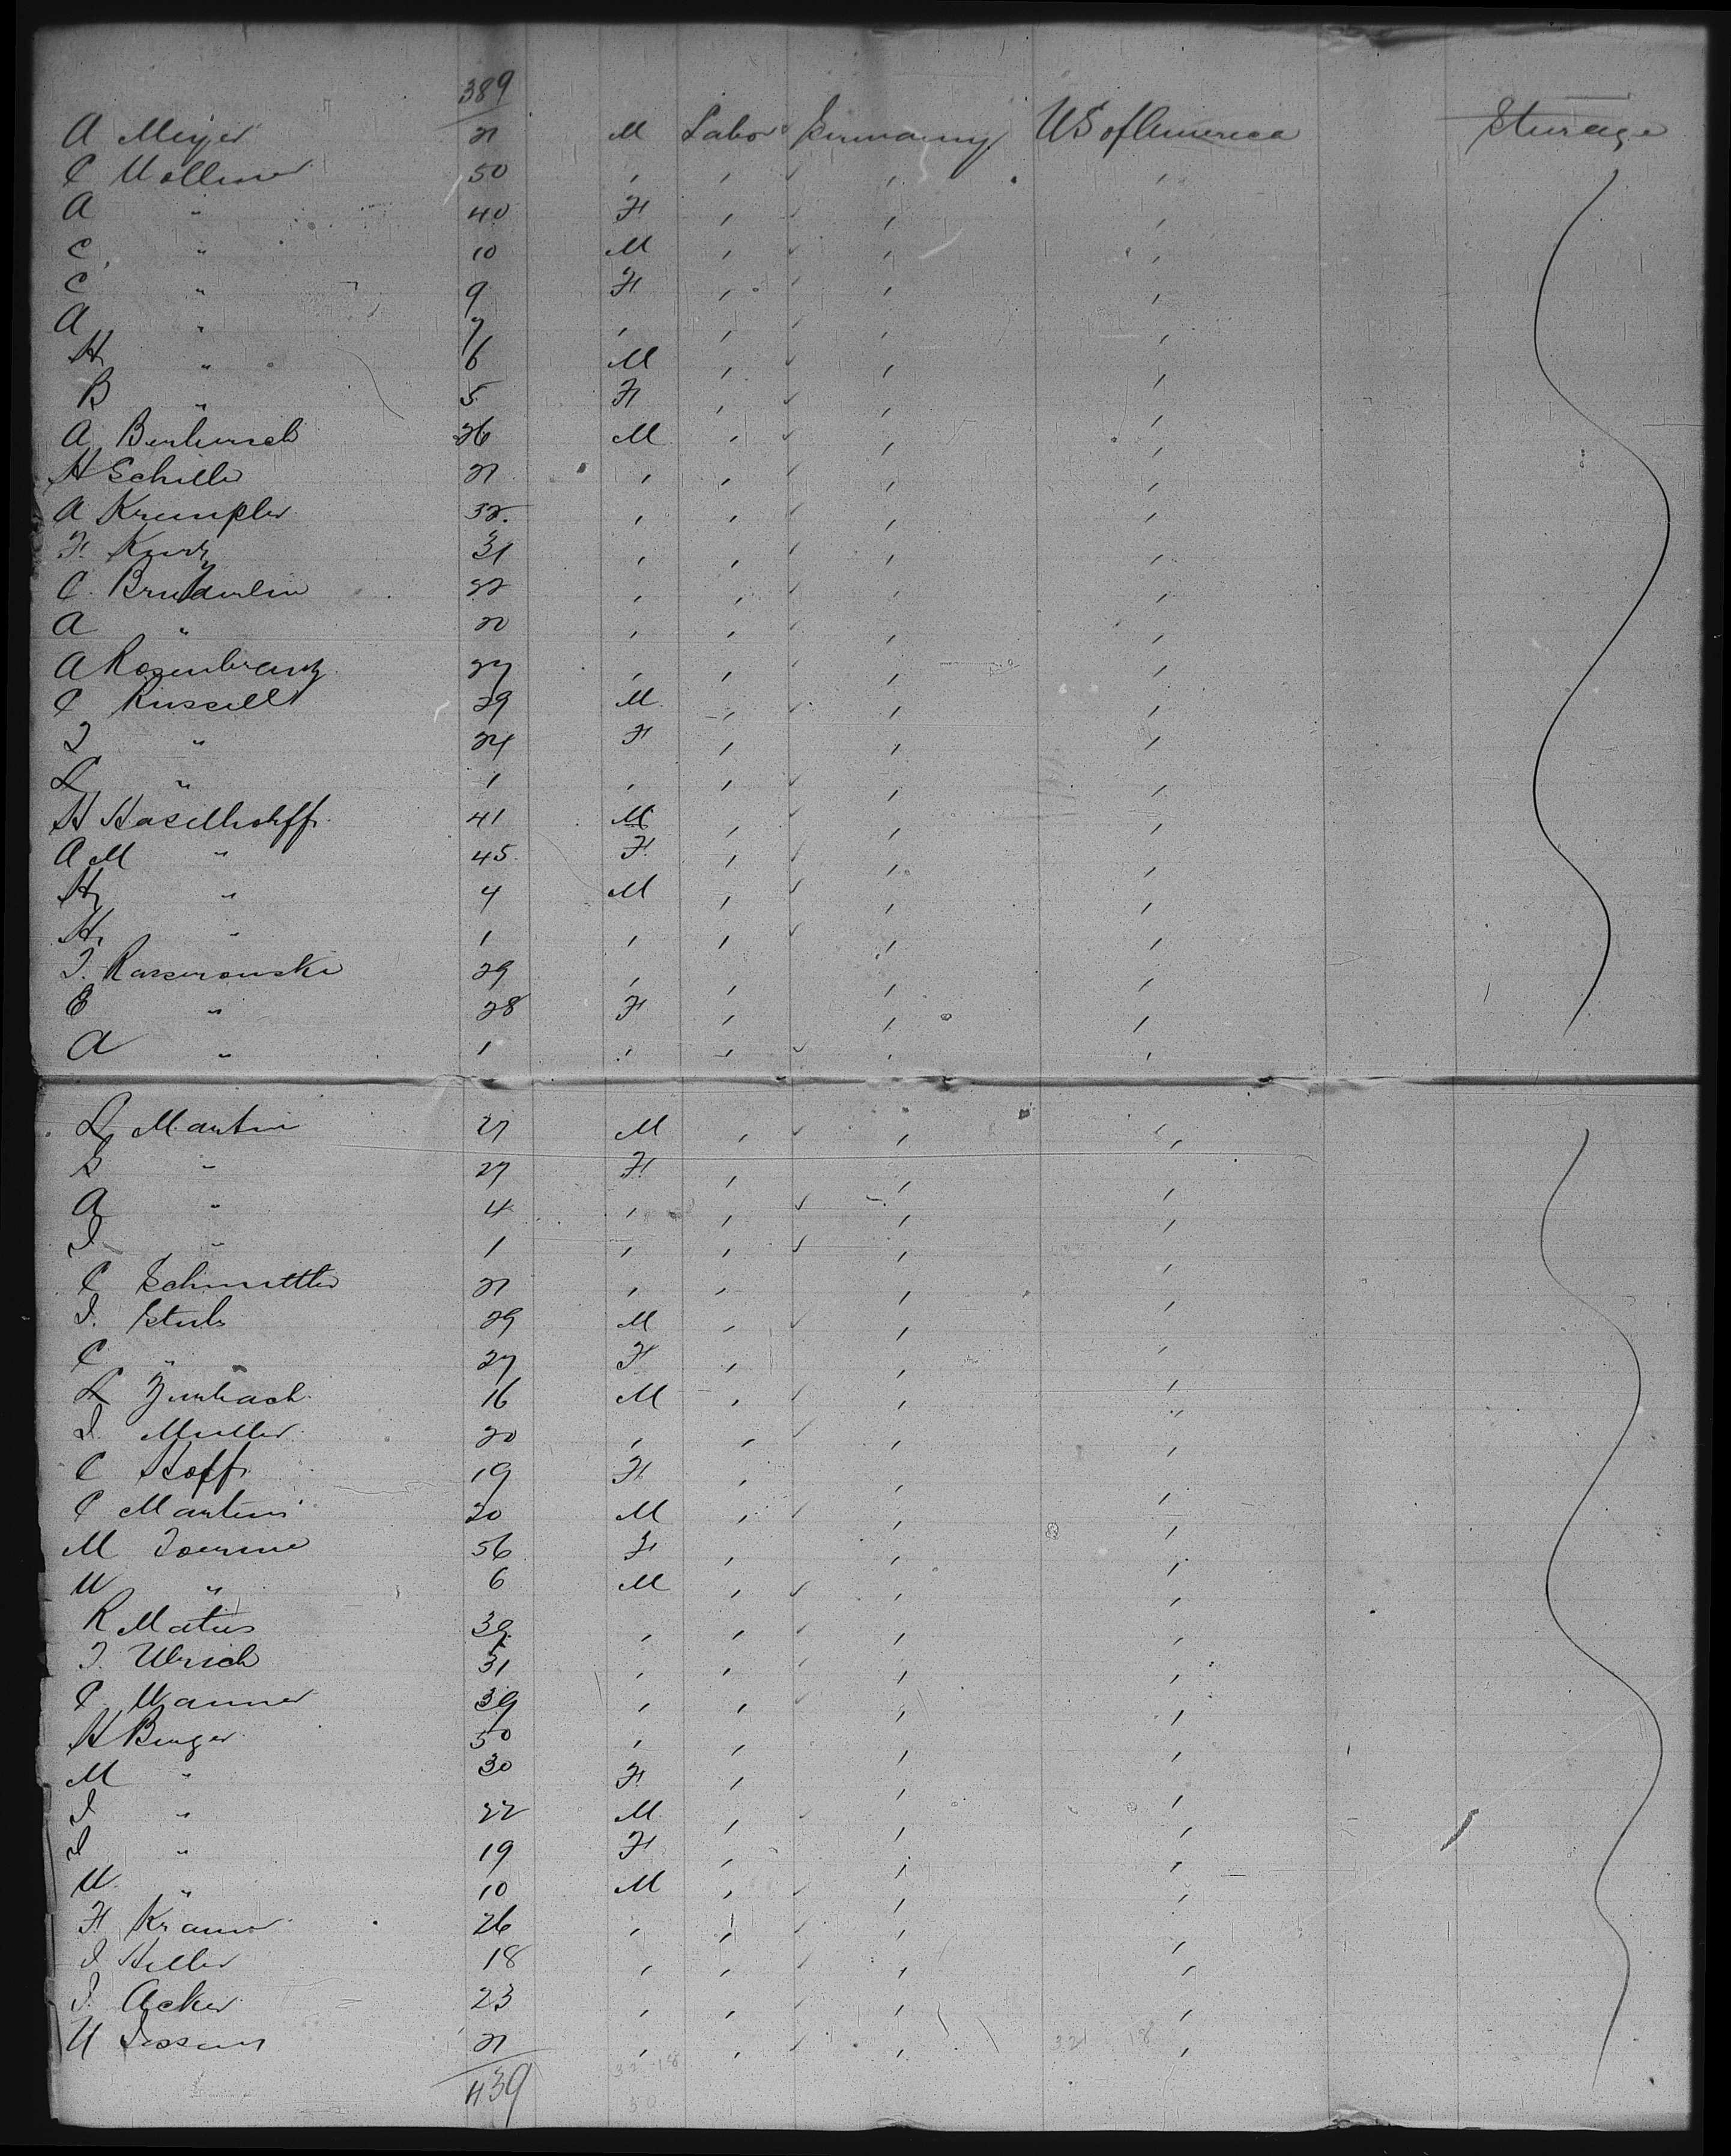 389
A Meyer 21 M Labor Germany US of America Steerage
C Wollmer 50 " " " "
A " 40 F " " "
C " 10 M " " "
C " 9 F " " "
A " 7 " " " "
H " 6 M " " "
B " 5 F " " "
A 26 M " " "
H Schiller 21 " " " "
A Krempler 32 " " " "
F. Kurtz 31 " " " "
C. Bruderlin 22 " " " "
A " 20 " " " "
A Rosenbrantz 27 " " " "
C Russell 29 M " " "
J " 24 F " " "
L " 1 " " " "
H Haselhohff 41 M " " "
A M " 45 F " " "
H " 4 M " " "
H. " 1 " " " "
J. 29 " " " "
E " 28 F " " "
A " 1 " " " "
L Martin 27 M " " "
S " 27 F " " "
A " 4 " " " "
J " 1 " " " "
C Schmittler 21 " " " "
J. 29 M " " "
C " 27 F " " "
L 16 M " " "
J. Muller 20 " " " "
C Hoff 19 F " " "
C Martens 20 M " " "
M 56 F " " "
W " 6 M " " "
R Matius 39 " " " "
J. Ulrich 31 " " " "
C Wanner 39 " " " "
H Berger 50 " " " "
M " 30 F " " "
J " 22 M " " "
J " 19 F " " "
W. " 10 M " " "
F Kramer 26 " " " "
J Heller 18 " " " "
J. Acker 23 " " " "
W Jessen 21 " " " "
439
32 18
50